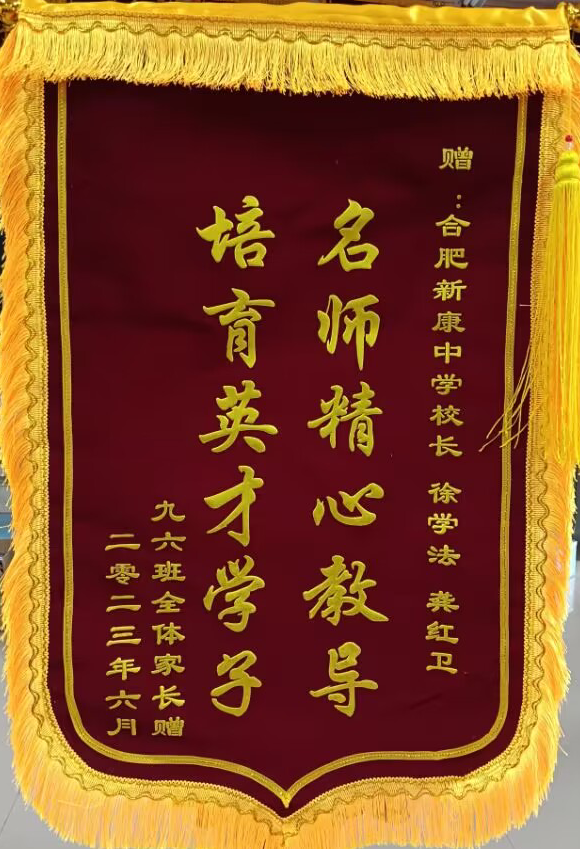 赠：合肥新康中学校长 徐学法 龚红卫
名师精心教导
培育英才学子
九六班全体家长赠
二零二三年六月